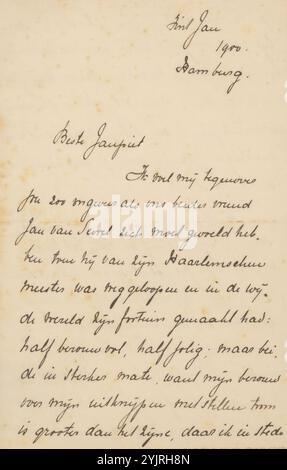 Sint Jan
1900.
Hamburg.
Beste Janpiet
Ik voel mij tegenover
jou zoo ongeveer als ons beider vriend
Jan van Scorel zich moet gevoeld heb-
ben toen hij van zijn Haarlemschen
meester was weggeloopen en in de wij-
de wereld zijn fortuin gemaakt had:
half berouwvol, half jolig; maar bei-
de in sterke mate, want mijn berouw
over mijn uitknijpen met stille trom
is grooter dan het zijne, daar ik in stede
alamy
Image ID: 2YJRH8N
www.alamy.com